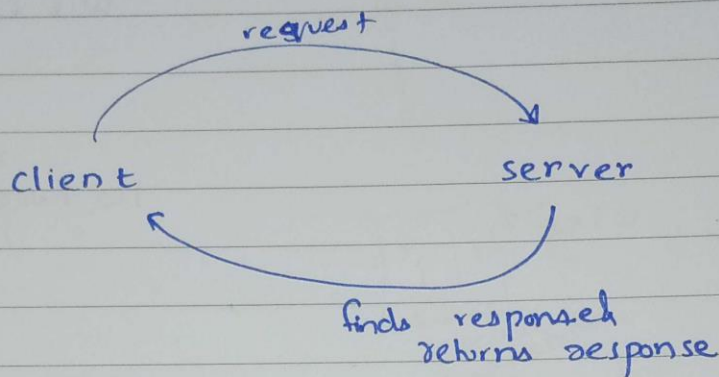 request
client
server
finds response &
returns response